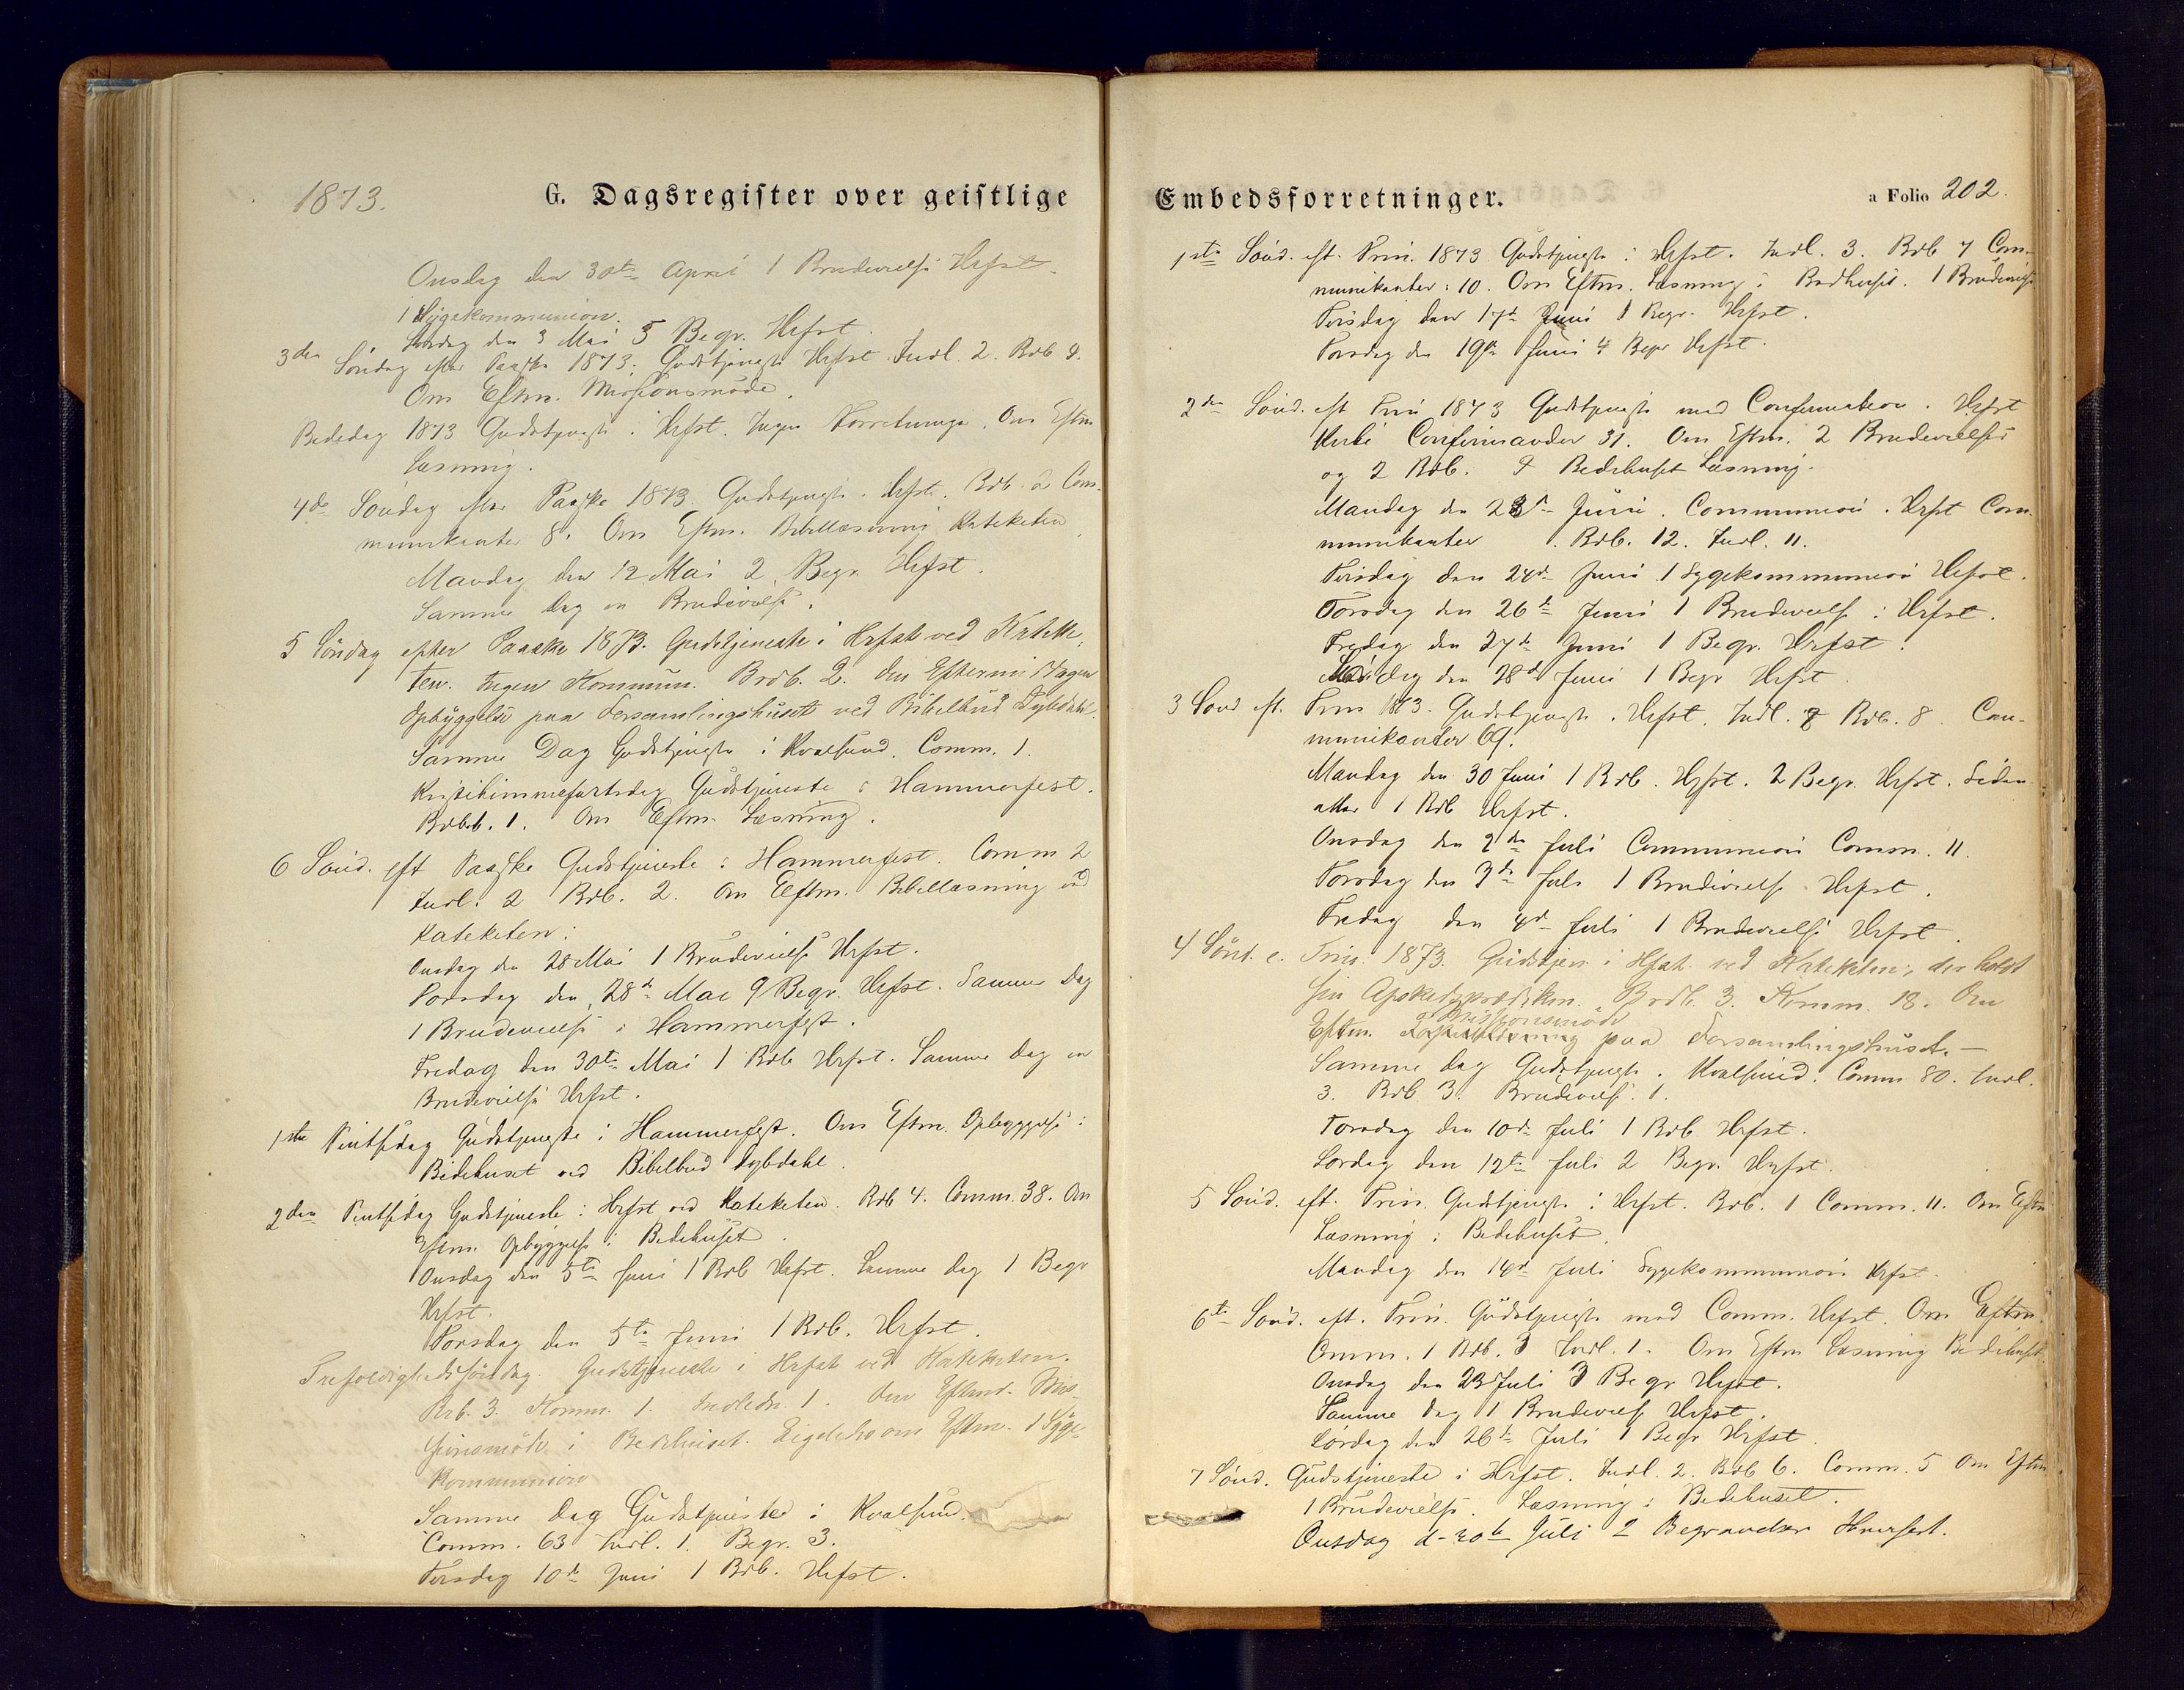 1873.
G. Dagsregister over geistlige
Onsdag den 30te April 1 Brudevielse Hrfst.
1 Sygekommunion.
Lördag den 3 Mai 5 Begr. Hrfst.
3die Söndag efter Paaske 1873. Gudstjeneste Hrfst. Indl. 2. Brdb 9.
Om Eftm. Missionsmöde.
Bededag 1873 Gudstjeneste i Hrfst. Ingen Forretninger. Om Eftm
Læsning.
4de Söndag efter Paaske 1873. Gudstjeneste i Hrfst. Brdb. 2 Com-
munikanter 8. Om Eftm. Bibellæsning Kateketen
Mandag den 12 Mai 2 Begr. Hrfst.
Samme Dag en Brudevielse.
5 Söndag efter Paaske 1873. Gudstjeneste i Hrfst ved Kateke-
ten. Ingen Kommun. Brdb. 2. Om Eftermiddagen
Opbyggelse paa Forsamlingshuset ved Bibelbud Dybdahl.
Samme Dag Gudstjeneste i Kvalsund. Comm. 1.
Kristihimmelfartsdag Gudstjeneste i Hammerfest.
Brdb. 1. Om Eftm. Læsning.
6 Sönd. eft Paaske Gudstjeneste i Hammerfest. Comm 2
Indl. 2 Brdb. 2. Om Eftm. Bibellæsning ved
Kateketen.
Onsdag den 28 Mai 1 Brudevielse Hrfst.
Torsdag den 28de Mai 9 Begr. Hrfst. Samme Dag
1 Brudevielse i Hammerfest.
Fredag den 30te Mai 1 Brdb Hrfst. Samme Dag en
Brudevielse Hrfst.
1ste Pintsedag Gudstjeneste i Hammerfest. Om Eftm. Opbyggelse i
Bedehuset ved Bibelbud Dybdahl.
2den Pintsedag Gudstjeneste i Hrfst ved Kateketen. Brdb 4. Comm. 38. Om
Eftm. Opbyggelse i Bedehuset.
Onsdag den 5te Juni 1 Brdb Hrfst. Samme Dag 1 Begr
Hrfst.
Torsdag den 5te Juni 1 Brdb. Hrfst.
Trefoldighedssöndag. Gudstjeneste i Hrfst ved Kateketen.
Brb. 3. Komm. 1. Indledn. 1. Om Efterm. Mis-
sionsmöde i Bedehuset. Ligeledes om Eftm. 1 Syge-
kommunion
Samme Dag Gudstjeneste i Kvalsund.
Comm. 63 Indl. 1. Begr. 3.
Tirsdag 10de Juni 1 Brdb. Hrfst.
Embedsforretninger.
a Folio 202.
1ste Sönd. eft. Trin. 1873 Gudstjeneste i Hrfst. Indl. 3. Brdb 7 Com-
munikanter: 10. Om Eftm. Læsning i Bedhuset. 1 Brudevielse
Tirsdag den 17de Juni 1 Begr. Hrfst.
Torsdag den 19de Juni 4 Begr Hrfst.
2den Sönd. eft Trin 1873 Gudstjeneste med Confirmation. Hrfst
Kirke Confirmander 31. Om Eftm. 2 Brudevielser
og 2 Brdb. I Bedehuset Læsning.
Mandag den 23de Juni. Communion. Hrfst Com-
munikanter Brdb. 12. Indl. 11.
Tirsdag den 24de Juni 1 Sygekommunion Hrfst.
Torsdag den 26de Juni 1 Brudevielse i Hrfst.
Fredag den 27de Juni 1 Begr. Hrfst.
Lördag den 28de Juni 1 Begr Hrfst.
3 Sönd eft. Trin 1873. Gudstjeneste i Hrfst. Indl. 7 Brdb. 8. Com-
munikanter 69.
Mandag den 30 Juni 1 Brdb. Hrfst. 2 Begr. Hrfst. Siden
atter 1 Brdb Hrfst.
Onsdag den 2den Juli Communion Comm. 11.
Torsdag den 3de Juli 1 Brudevielse Hrfst.
Fredag den 4de Juli 1 Brudevielse Hrfst.
4 Sönd. e. Trin. 1873. Gudstjen. i Hfst. ved Kateketen, der holdt
sin Afskedsprædiken. Brdb. 3. Komm. 18. Om
Eftm. Missionsmöde paa Forsamlingshuset.—
Samme Dag Gudstjeneste i Kvalsund. Comm 80. Indl.
3. Brdb 3. Brudeviels. 1.
Torsdag den 10de Juli 1 Brdb Hrfst.
Lördag den 12te Juli 2 Begr. Hrfst.
5 Sönd. eft. Trin. Gudstjeneste i Hrfst. Brdb. 1 Comm. 11. Om Eftm
Læsning i Bedehuset.
Mandag den 14de Juli Sygekommunion Hrfst.
6te Sönd. eft. Trin. Gudstjeneste med Comm. Hrfst. Om Eftm.
Comm. 1 Brdb. 3 Indl. 1. Om Eftm Læsning Bedehuset
Onsdag den 23 Juli 3 Begr Hrfst.
Samme Dag 1 Brudevielse Hrfst.
Lördag den 26de Juli 1 Begr Hrfst.
7 Sönd. Gudstjeneste i Hrfst. Indl. 2. Brdb 6. Comm. 5 Om Eftm
1 Brudevielse. Læsning i Bedehuset.
Onsdag d. 30te Juli 2 Begravelser